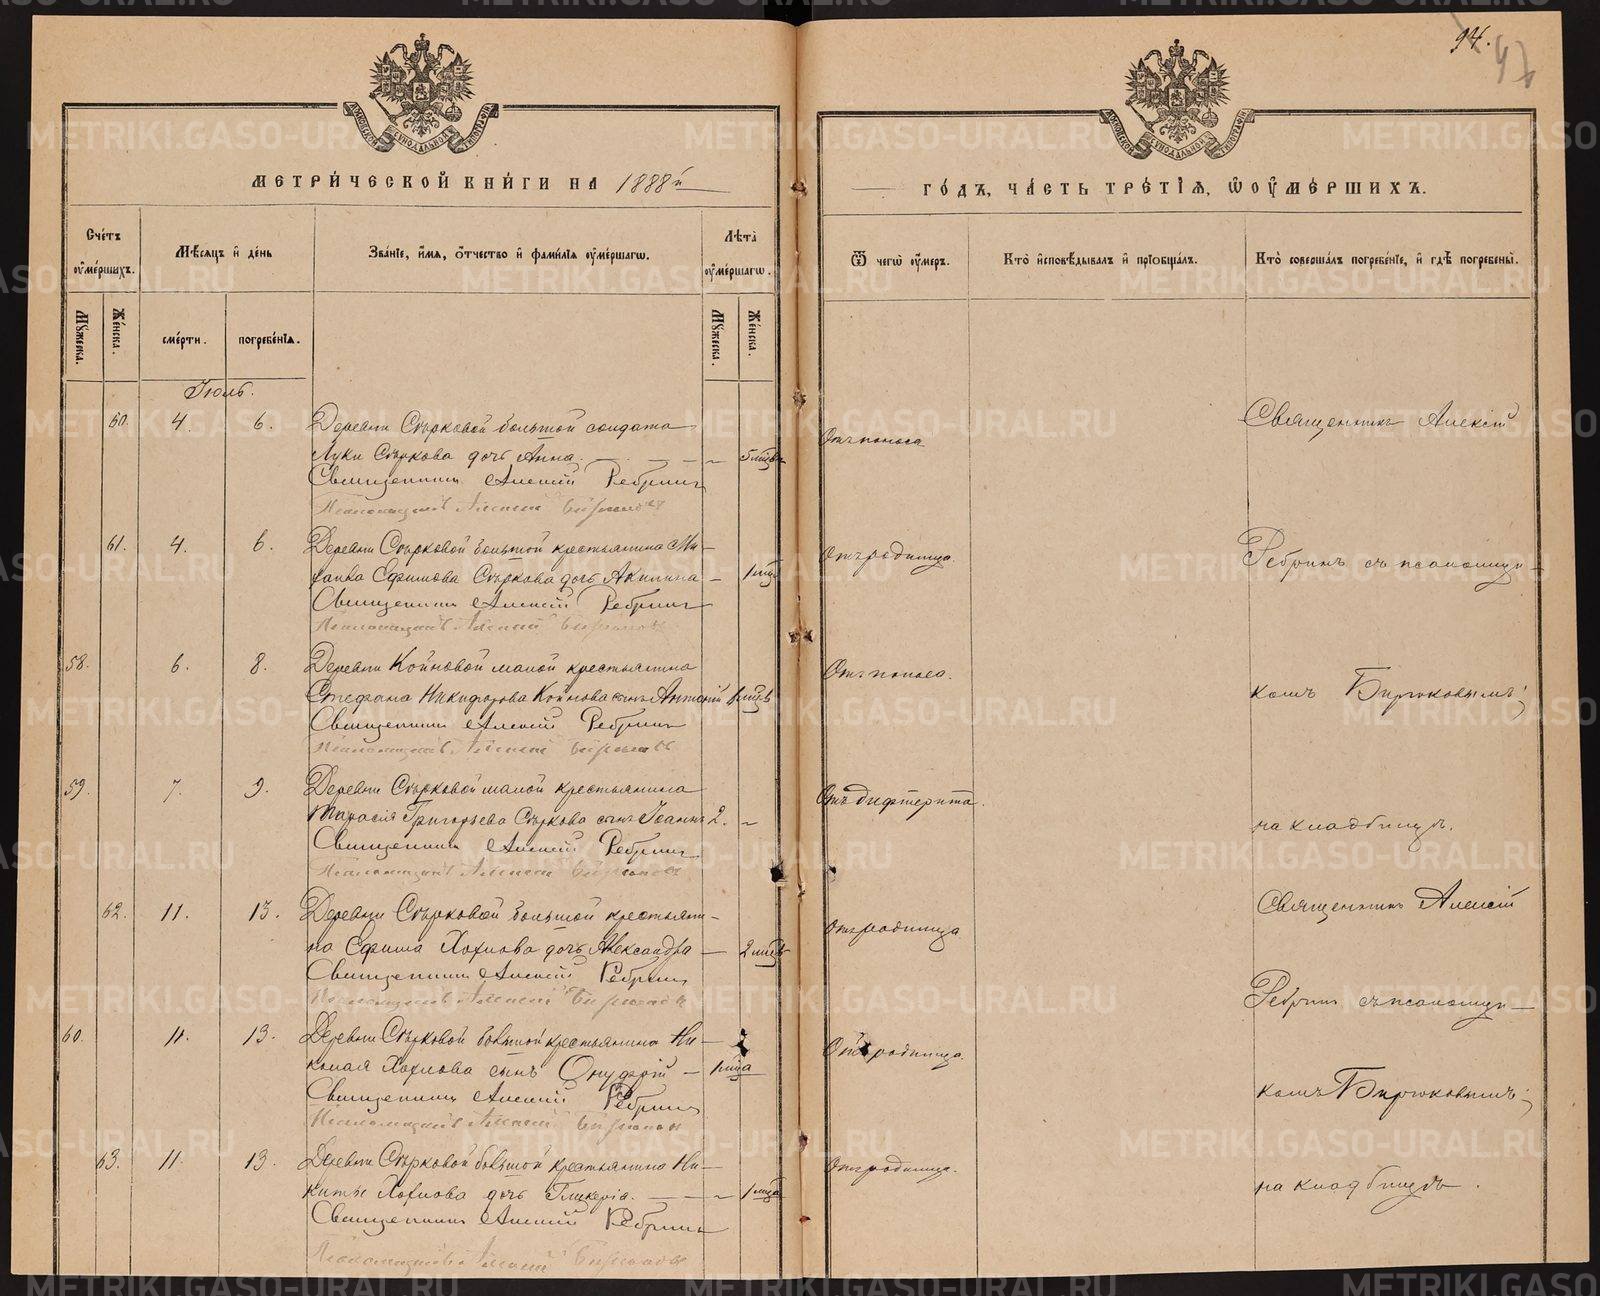 94.
47
МЕТРИЧЕСКОЙ КНИГИ НА 1888й
ГОДЪ, ЧАСТЬ ТРЕТІЯ, Ѿ ОУМЕРШИХЪ.
Счетъ оумершихъ.
Мѣсяцъ и день
Званіе, имя, отчество и фамилія оумершаго.
Лѣта оумершагѡ.
Ѿ чегѡ оумеръ.
Кто исповѣдывалъ и пріобщалъ.
Кто совершалъ погребеніе, и гдѣ погребены.
Мужеска.
Женска.
смерти.
погребенія.
Мужеска.
Женска.
Іюль.
60. 4. 6. Деревни Сѣрковой большой солдата
Луки Сѣркова дочь Анна. — 5 мѣсяц Отъ поноса
Священникъ Алексій Ребринъ
Псаломщикъ Алексій Бирюковъ
61. 4. 6. Деревни Сѣрковой большой крестьянина Ми-
Ефимова Сѣркова дочь Акилина — 1 мѣс Отъ родимца.
Священникъ Алексій Ребринъ
Псаломщикъ Алексій Бирюковъ
58. 6. 8. Деревни Койновой малой крестьянина
Стефана Никифорова Койнова сынъ Антоній мѣсц Отъ поноса.
Священникъ Алексій Ребринъ
Псаломщикъ Алексій Бирюковъ
59. 7. 9. Деревни Сѣрковой малой крестьянина
Тарасія Григорьева Сѣркова сынъ Іоаннъ 2. — Отъ дифтерита.
Священникъ Алексій Ребринъ
Псаломщикъ Алексій Бирюковъ
62. 11. 13. Деревни Сѣрковой большой крестьяни-
на Ефима Хохлова дочь Александра — 2 мѣсц Отъ родимца
Священникъ Алексій Ребринъ
Псаломщикъ Алексій Бирюковъ
60. 11. 13. Деревни Сѣрковой большой крестьянина Ни-
колая Хохлова сынъ Онуфрій — 1 мѣца Отъ родимца.
Священникъ Алексій Ребринъ
Псаломщикъ Алексій Бирюковъ
63. 11. 13. Деревни Сѣрковой большой крестьянина Ни-
киты Хохлова дочь Гликерія. — 1 мѣца Отъ родимца.
Священникъ Алексій Ребринъ
Псаломщикъ Алексій Бирюковъ
Священникъ Алексій
Ребринъ съ псаломщи-
комъ Бирюковымъ;
на кладбищѣ.
Священникъ Алексій
Ребринъ съ псаломщи-
комъ Бирюковымъ;
на кладбищѣ.
METRIKI.GASO-URAL.RU